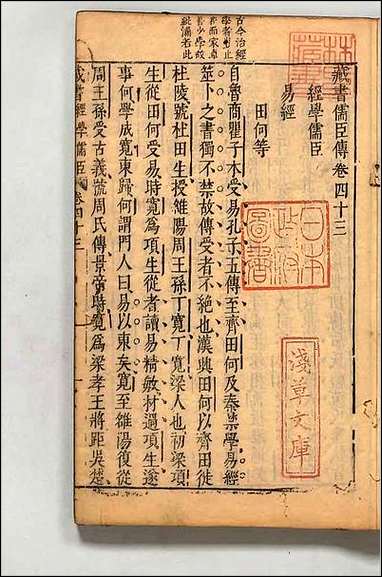 藏書儒臣傳卷四十三
經學儒臣
易經
田何等
自魯商瞿子木受易孔子五傳至齊田何及秦禁學易經
筮卜之書獨不禁故傳受者不絶也漢興田何以齊田徙
杜陵號杜田生授雒陽周王孫丁寬丁寬梁人也初梁項
生從田何受易時寬爲項生從者讀易精敏材過項生遂
事何學成寬東歸何謂門人曰易以東矣寬至雒陽復從
周王孫受古義號周氏傳景帝時寬爲梁孝王將距吳楚
藏書 經學儒臣 卷四十三
古今治經
日本
政府
圖書
淺草文庫
林氏
藏書